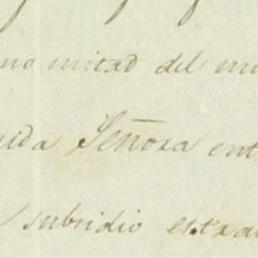 no mitad del mi
ida Señora ent
subsidio extra